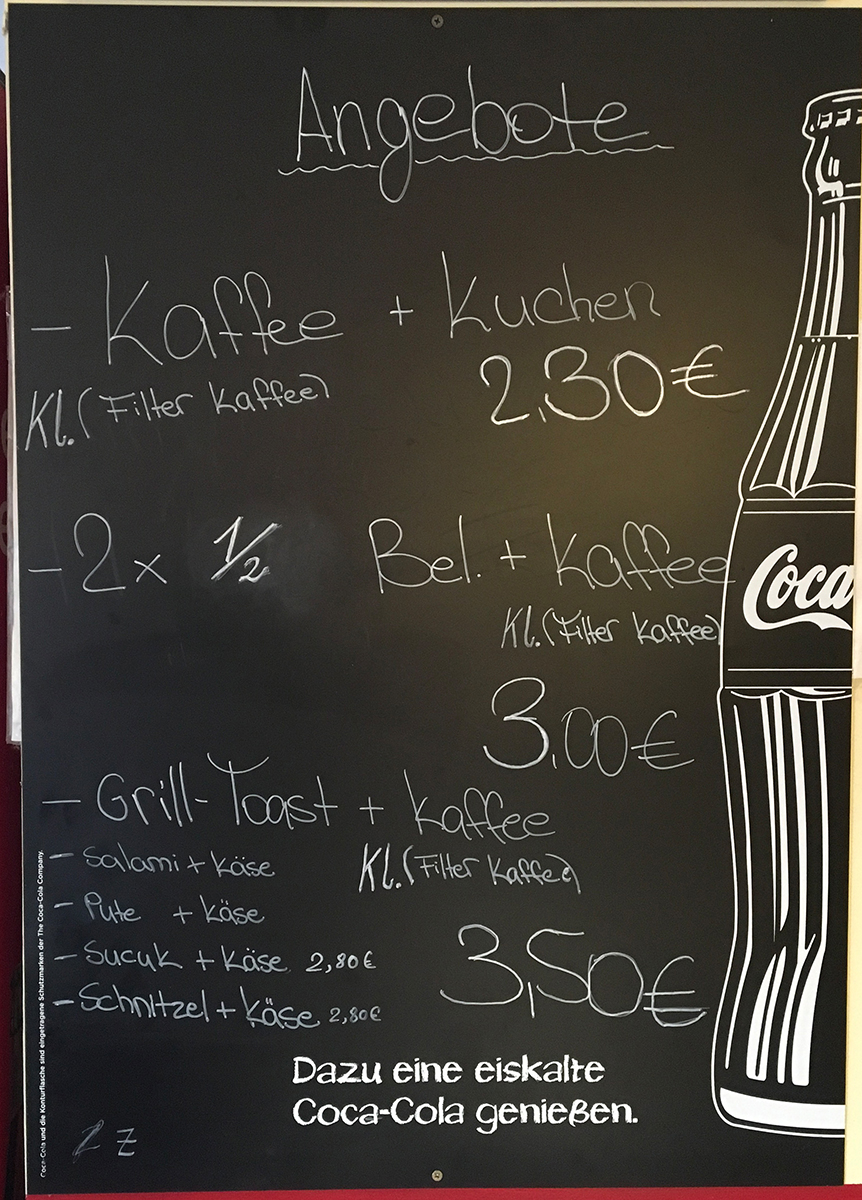 Angebote
- Kaffee + Kuchen
Kl. (Filter Kaffee) 2,30€
- 2x 1/2 Bel. + Kaffee
Kl. (Filter Kaffee)
3,00€
- Grill-Toast + Kaffee
- Salami + Käse Kl. (Filter Kaffee)
- Pute + Käse
- Sucuk + Käse 2,80€
- Schnitzel + Käse 2,80€
3,50€
Dazu eine eiskalte
Coca-Cola genießen.
Coca
Coca-Cola und die Konturflasche sind eingetragene Schutzmarken der The Coca-Cola Company.